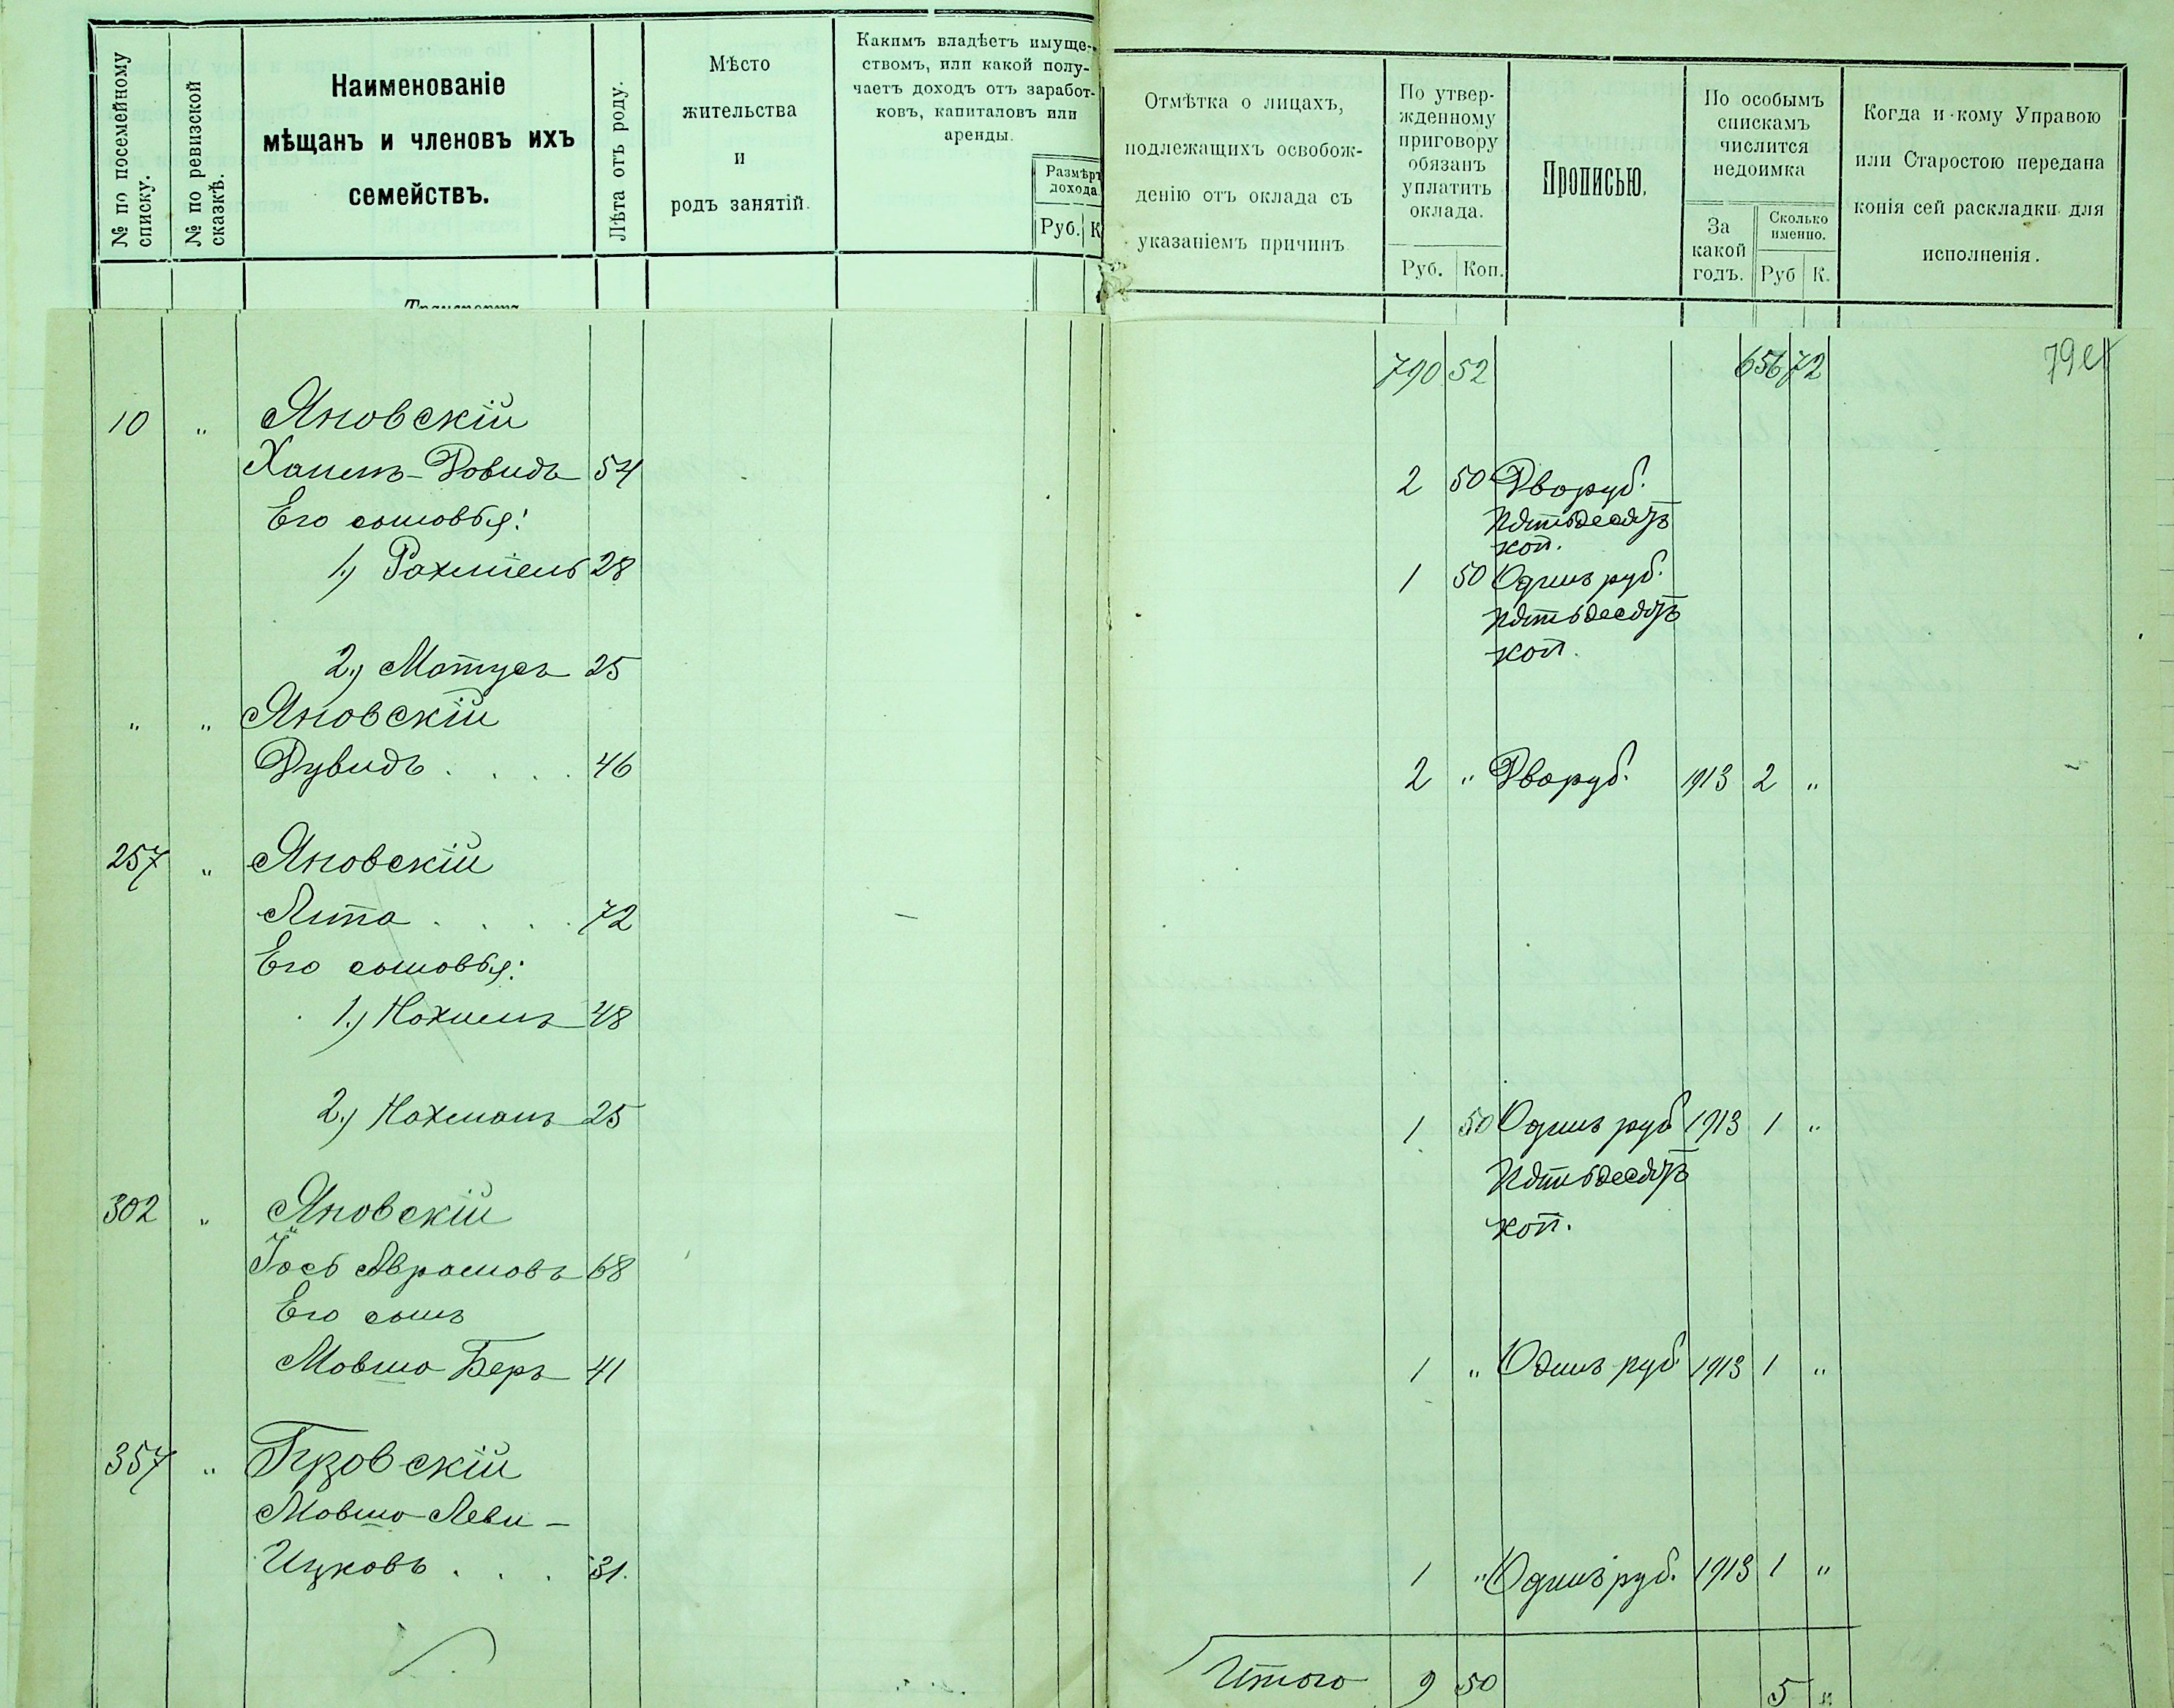 № по посемейному списку.
№ по ревизской сказкѣ.
Наименованіе
мѣщанъ и членовъ ихъ
семействъ.
Лѣта отъ роду.
Мѣсто
жительства
и
родъ занятій.
Какимъ владѣетъ имуще-
ствомъ, или какой полу-
чаетъ доходъ отъ заработ-
ковъ, капиталовъ или
аренды.
Размѣръ
дохода
Руб. К
Отмѣтка о лицахъ,
подлежащихъ освобож-
денію отъ оклада съ
указаніемъ причинъ
По утвер-
жденному
приговору
обязанъ
уплатить
оклада.
Руб. Коп.
Прописью.
По особымъ
спискамъ
числится
недоимка
За
какой
годъ.
Сколько
именно.
Руб К.
Когда и кому Управою
или Старостою передана
копія сей раскладки для
исполненія.
790 52 656 72
10 " Яновскій
Хаимъ-Довидъ 54 2 50 Два руб.
Пятьдесятъ
коп.
Его сыновья:
1.) Рахміель 28 1 50 Одинъ руб.
Пятьдесятъ
коп.
2.) Мотусъ 25
" " Яновскій
Дувидъ . . . . 46 2 " Два руб. 1913 2 "
257 " Яновскій
Лита . . . . 72
Его сыновья:
1.) Нохимъ 48
2.) Нохманъ 25 1 50 Одинъ руб 1913 1 "
Пятьдесятъ
коп.
302 " Яновскій
Іось Абрамовъ 68
Его сынъ
Мовша Беръ 41 1 " Одинъ руб 1913 1 "
357 " Гузовскій
Мовша-Леви-
Ицковъ . . . 31. 1 " Одинъ руб. 1913 1 "
Итого 9 50 5 "